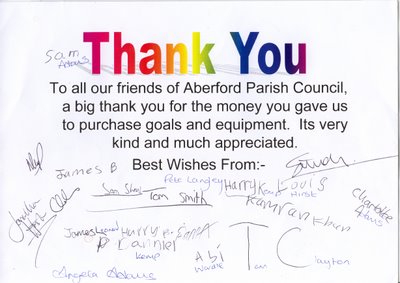 Thank You
Sam Adams
To all our friends of Aberford Parish Council,
a big thank you for the money you gave us
to purchase goals and equipment.  Its very
kind and much appreciated.
Best Wishes From:-
James B
Pete Langley
Harry Kemp
Louis Hirst
Charlotte Adams
Tom Smith
Kamran Khan
James
Harry
Kemp
Abi
Tom Clayton
Angela Adams